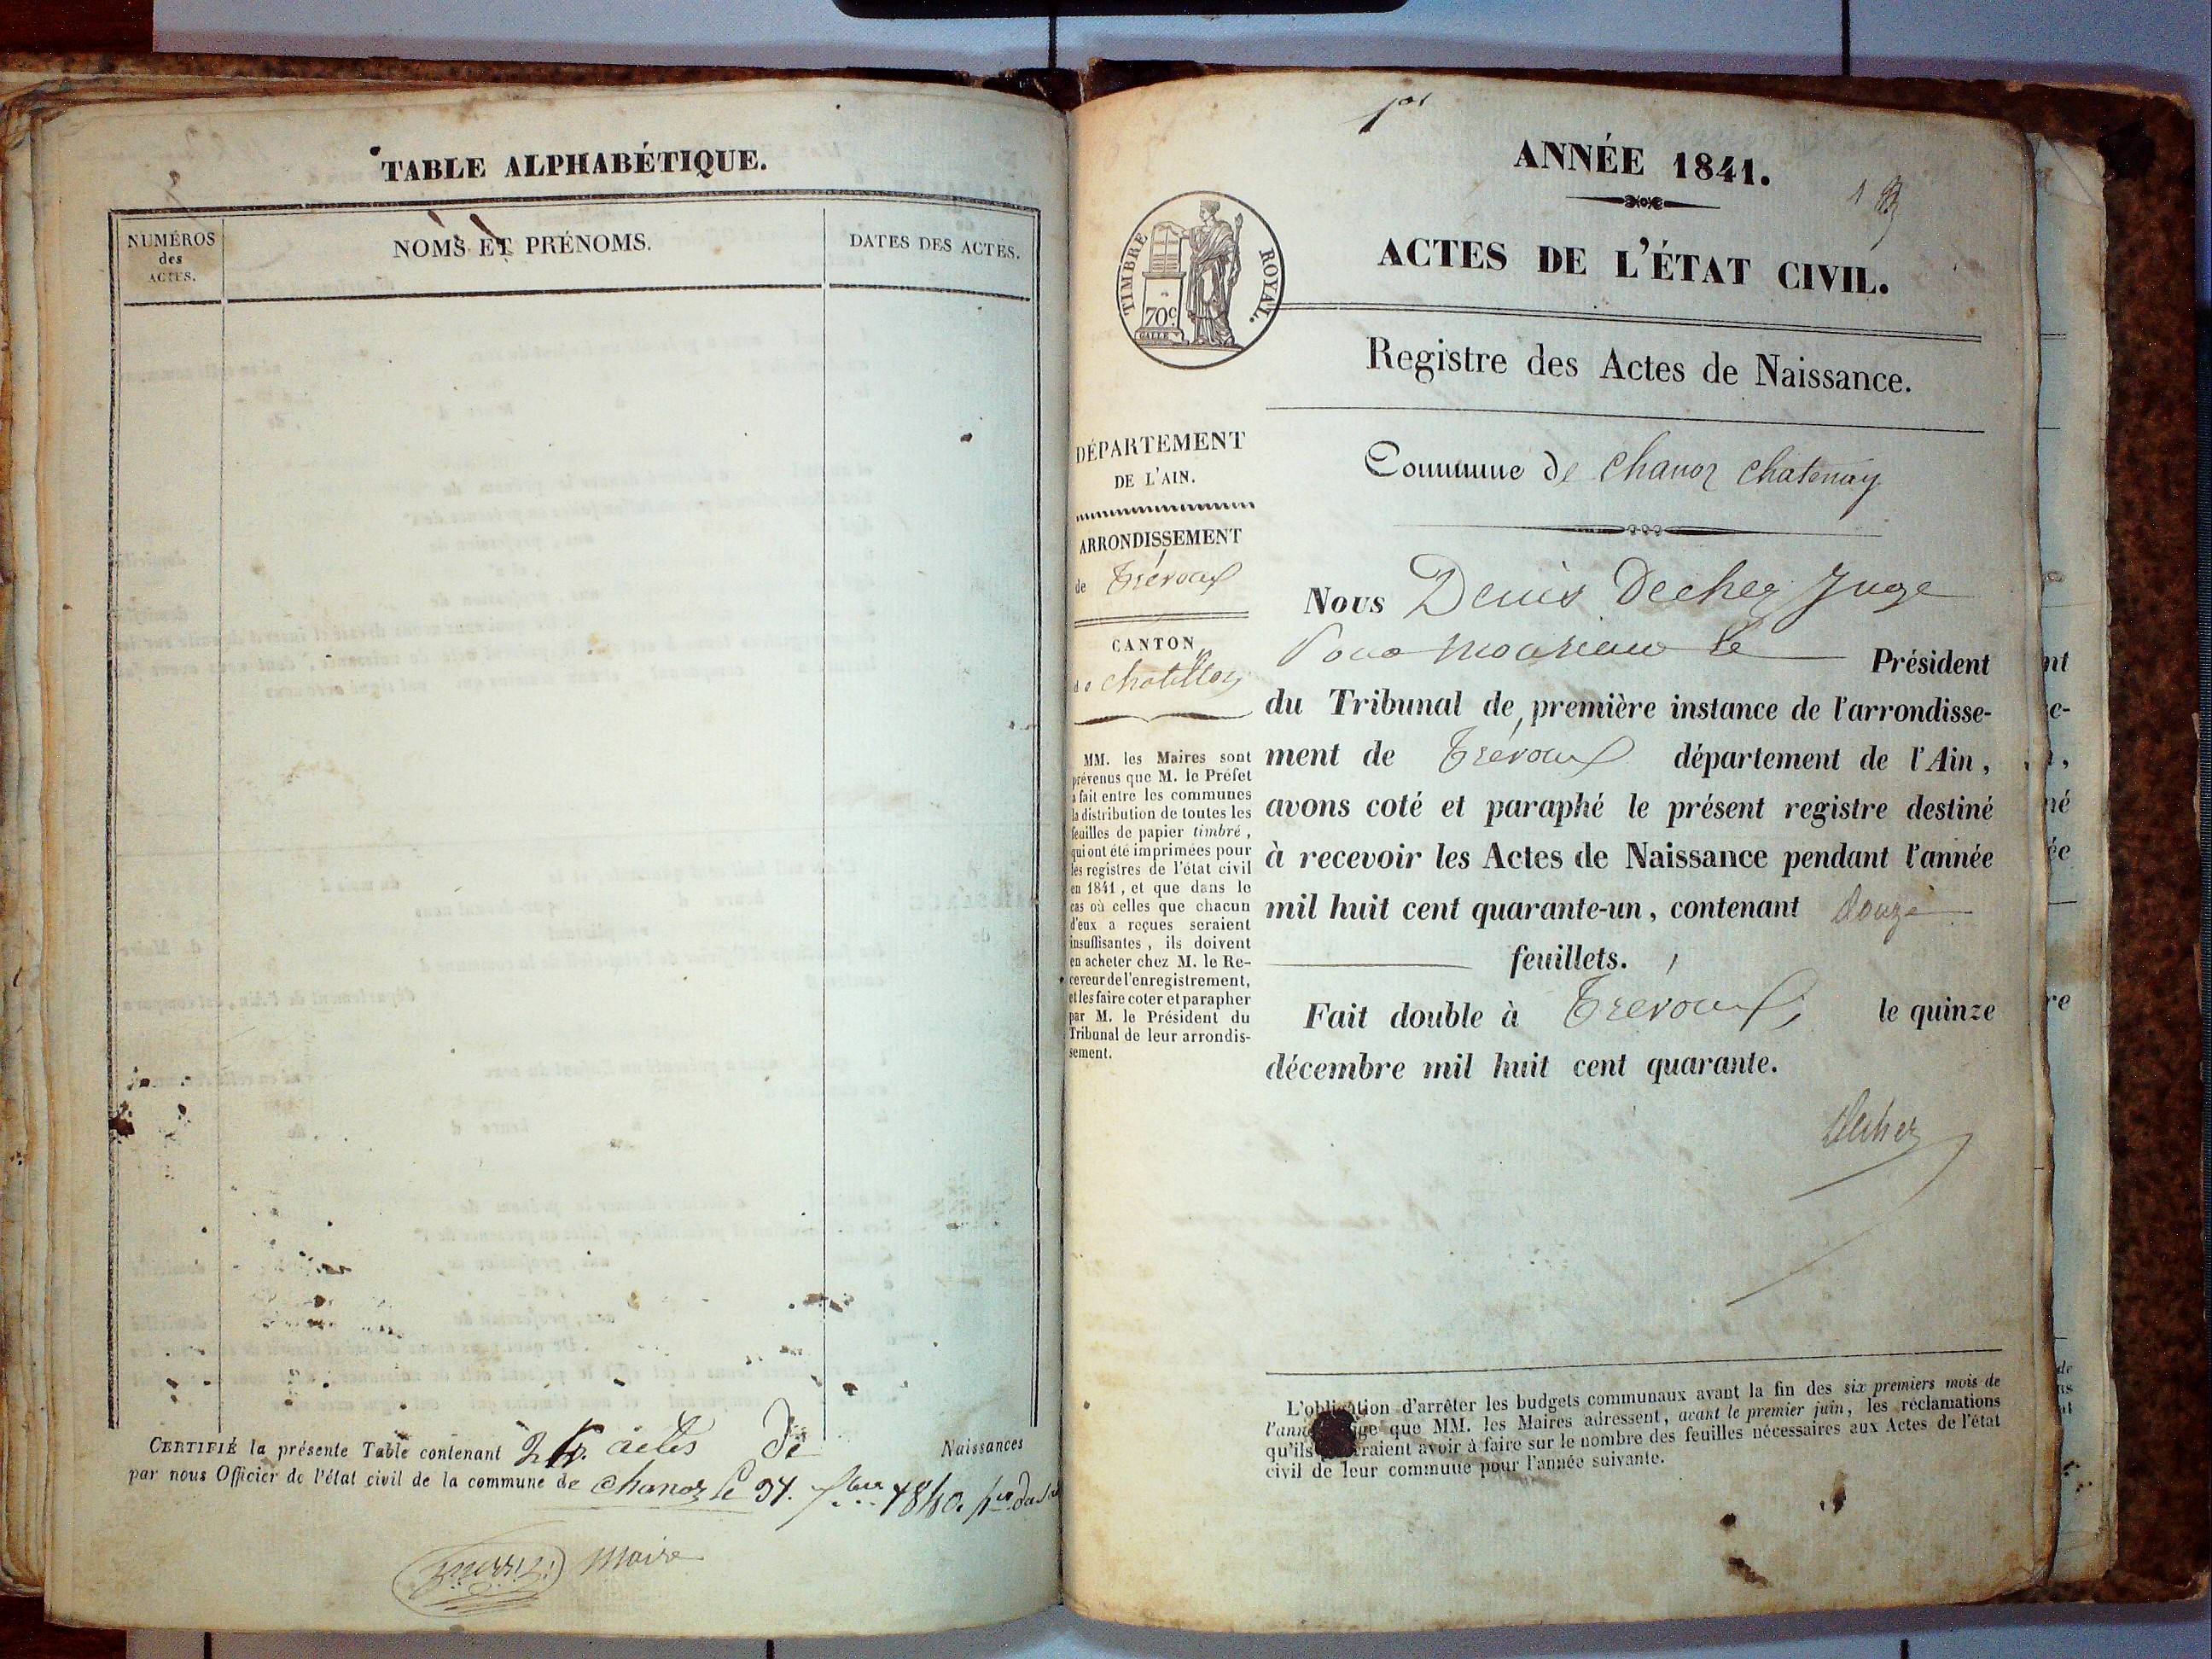 TABLE ALPHABÉTIQUE.
NUMÉROS
des
ACTES.
NOMS ET PRÉNOMS.
DATES DES ACTES.
CERTIFIÉ la présente Table contenant actes de Naissances
par nous Officier de l'état civil de la commune de chanoz le 1840.
Maire
1er
ANNÉE 1841.
ACTES DE L'ÉTAT CIVIL.
TIMBRE ROYAL.
70c
GALLE
Registre des Actes de Naissance.
Commune de Chanoz Chatenay
DÉPARTEMENT
DE L'AIN.
ARRONDISSEMENT
de Trévoux
CANTON
de chatillon
MM. les Maires sont
prévenus que M. le Préfet
a fait entre les communes
la distribution de toutes les
feuilles de papier timbré,
qui ont été imprimées pour
les registres de l'état civil
en 1841, et que dans le
cas où celles que chacun
d'eux a reçues seraient
insuffisantes, ils doivent
en acheter chez M. le Re-
ceveur de l'enregistrement,
et les faire coter et parapher
par M. le Président du
Tribunal de leur arrondis-
sement.
Nous Denis Dechez Juge
Pour Monsieur le Président
du Tribunal de première instance de l'arrondisse-
ment de Trévoux département de l'Ain,
avons coté et paraphé le présent registre destiné
à recevoir les Actes de Naissance pendant l'année
mil huit cent quarante-un, contenant douze
feuillets.
Fait double à Trévoux, le quinze
décembre mil huit cent quarante.
Dechez
L'obligation d'arrêter les budgets communaux avant la fin des six premiers mois de
l'année que MM. les Maires adressent, avant le premier juin, les réclamations
qu'ils avoir à faire sur le nombre des feuilles nécessaires aux Actes de l'état
civil de leur commune pour l'année suivante.